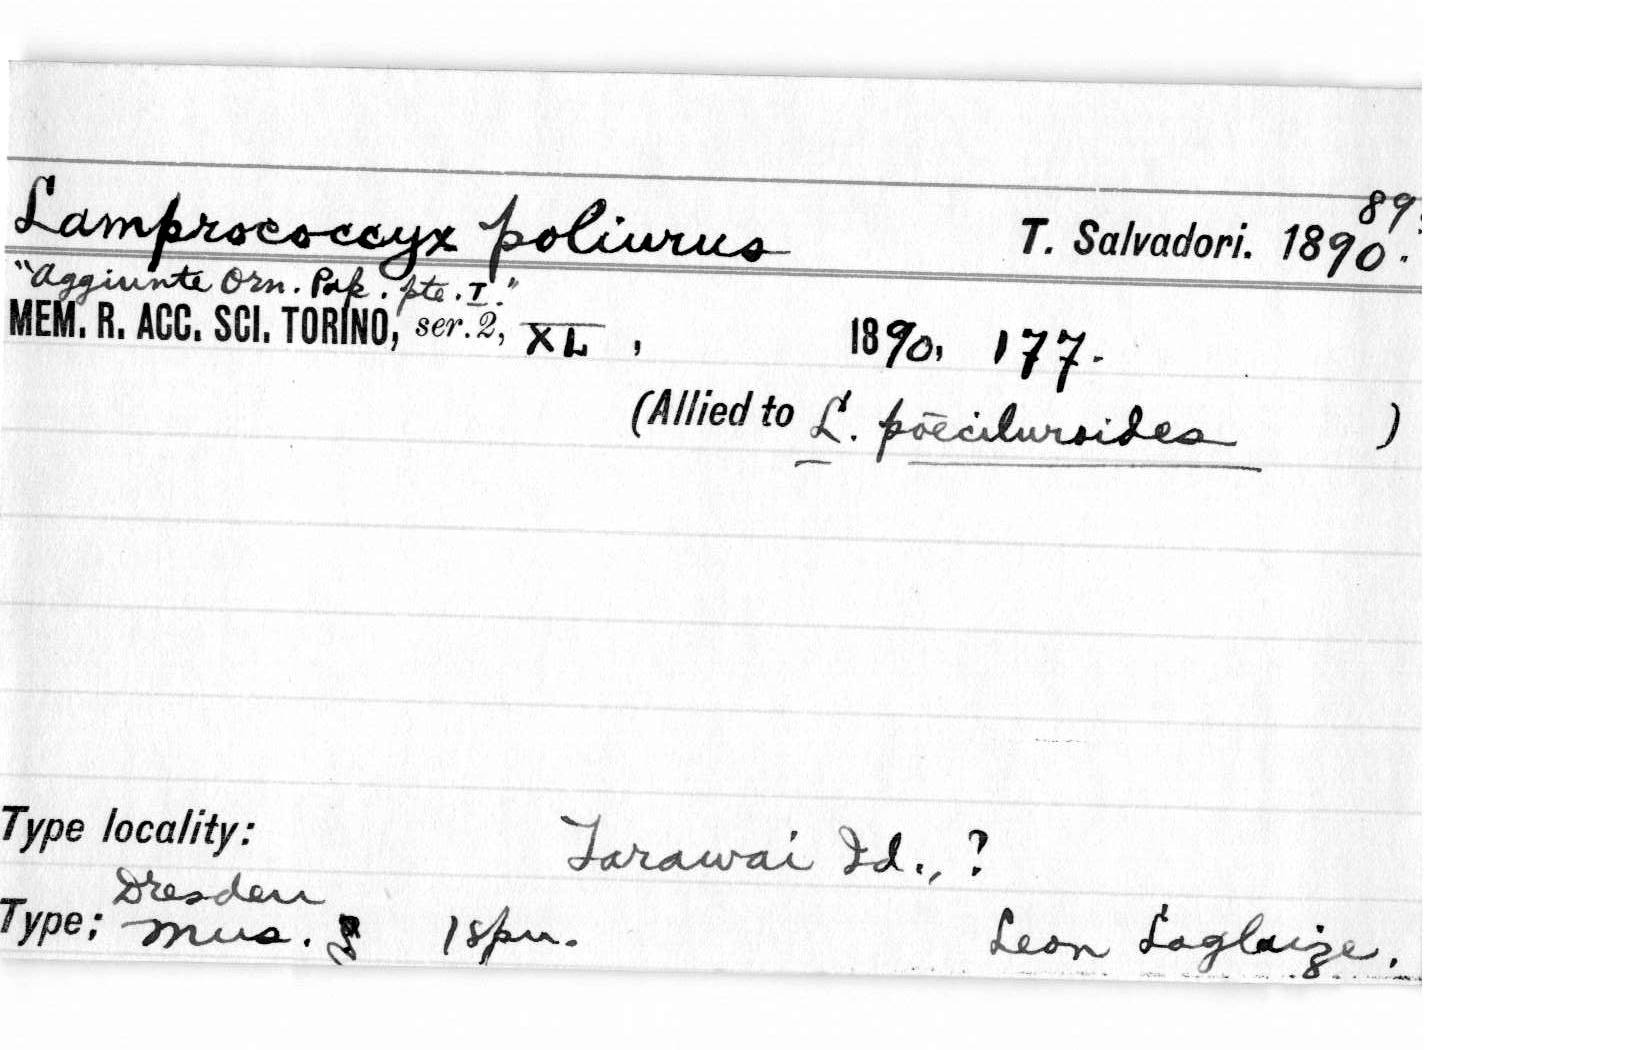 Lamprococcyx poliurus T. Salvadori. 1890.
89.
"Aggiunte Orn. Pap. pte. I."
MEM. R. ACC. SCI. TORINO, ser. 2, XL, 1890, 177.
(Allied to L. pœciluroides )
Type locality: Tarawai Id., ?
Dresden
Type; Mus. 1 spn. Leon Laglaize.